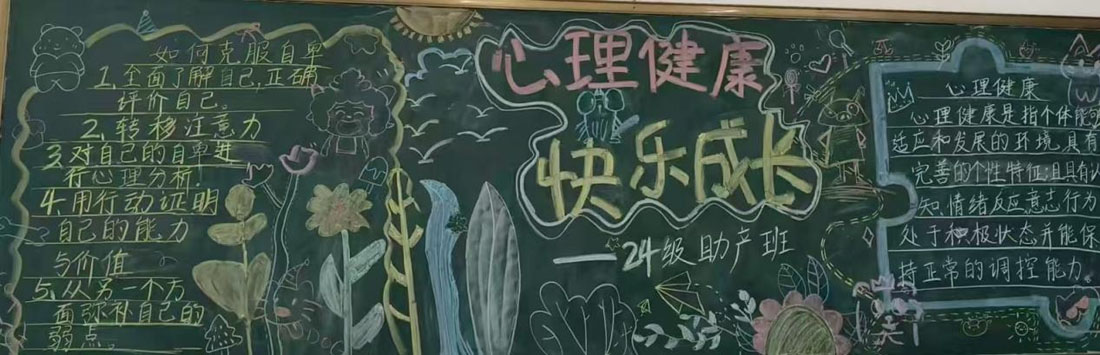 如何克服自卑
1.全面了解自己,正确
评价自己。
2.转移注意力
3.对自己的自卑进
行心理分析.
4.用行动证明
自己的能力
与价值
5.从另一个方
面弥补自己的
弱点。
心理健康
快乐成长
——24级助产班
心理健康
心理健康是指个体能够
适应和发展的环境,具有
完善的个性特征;且具有认
知,情绪反应,意志行为
处于积极状态并能保
持正常的调控能力。